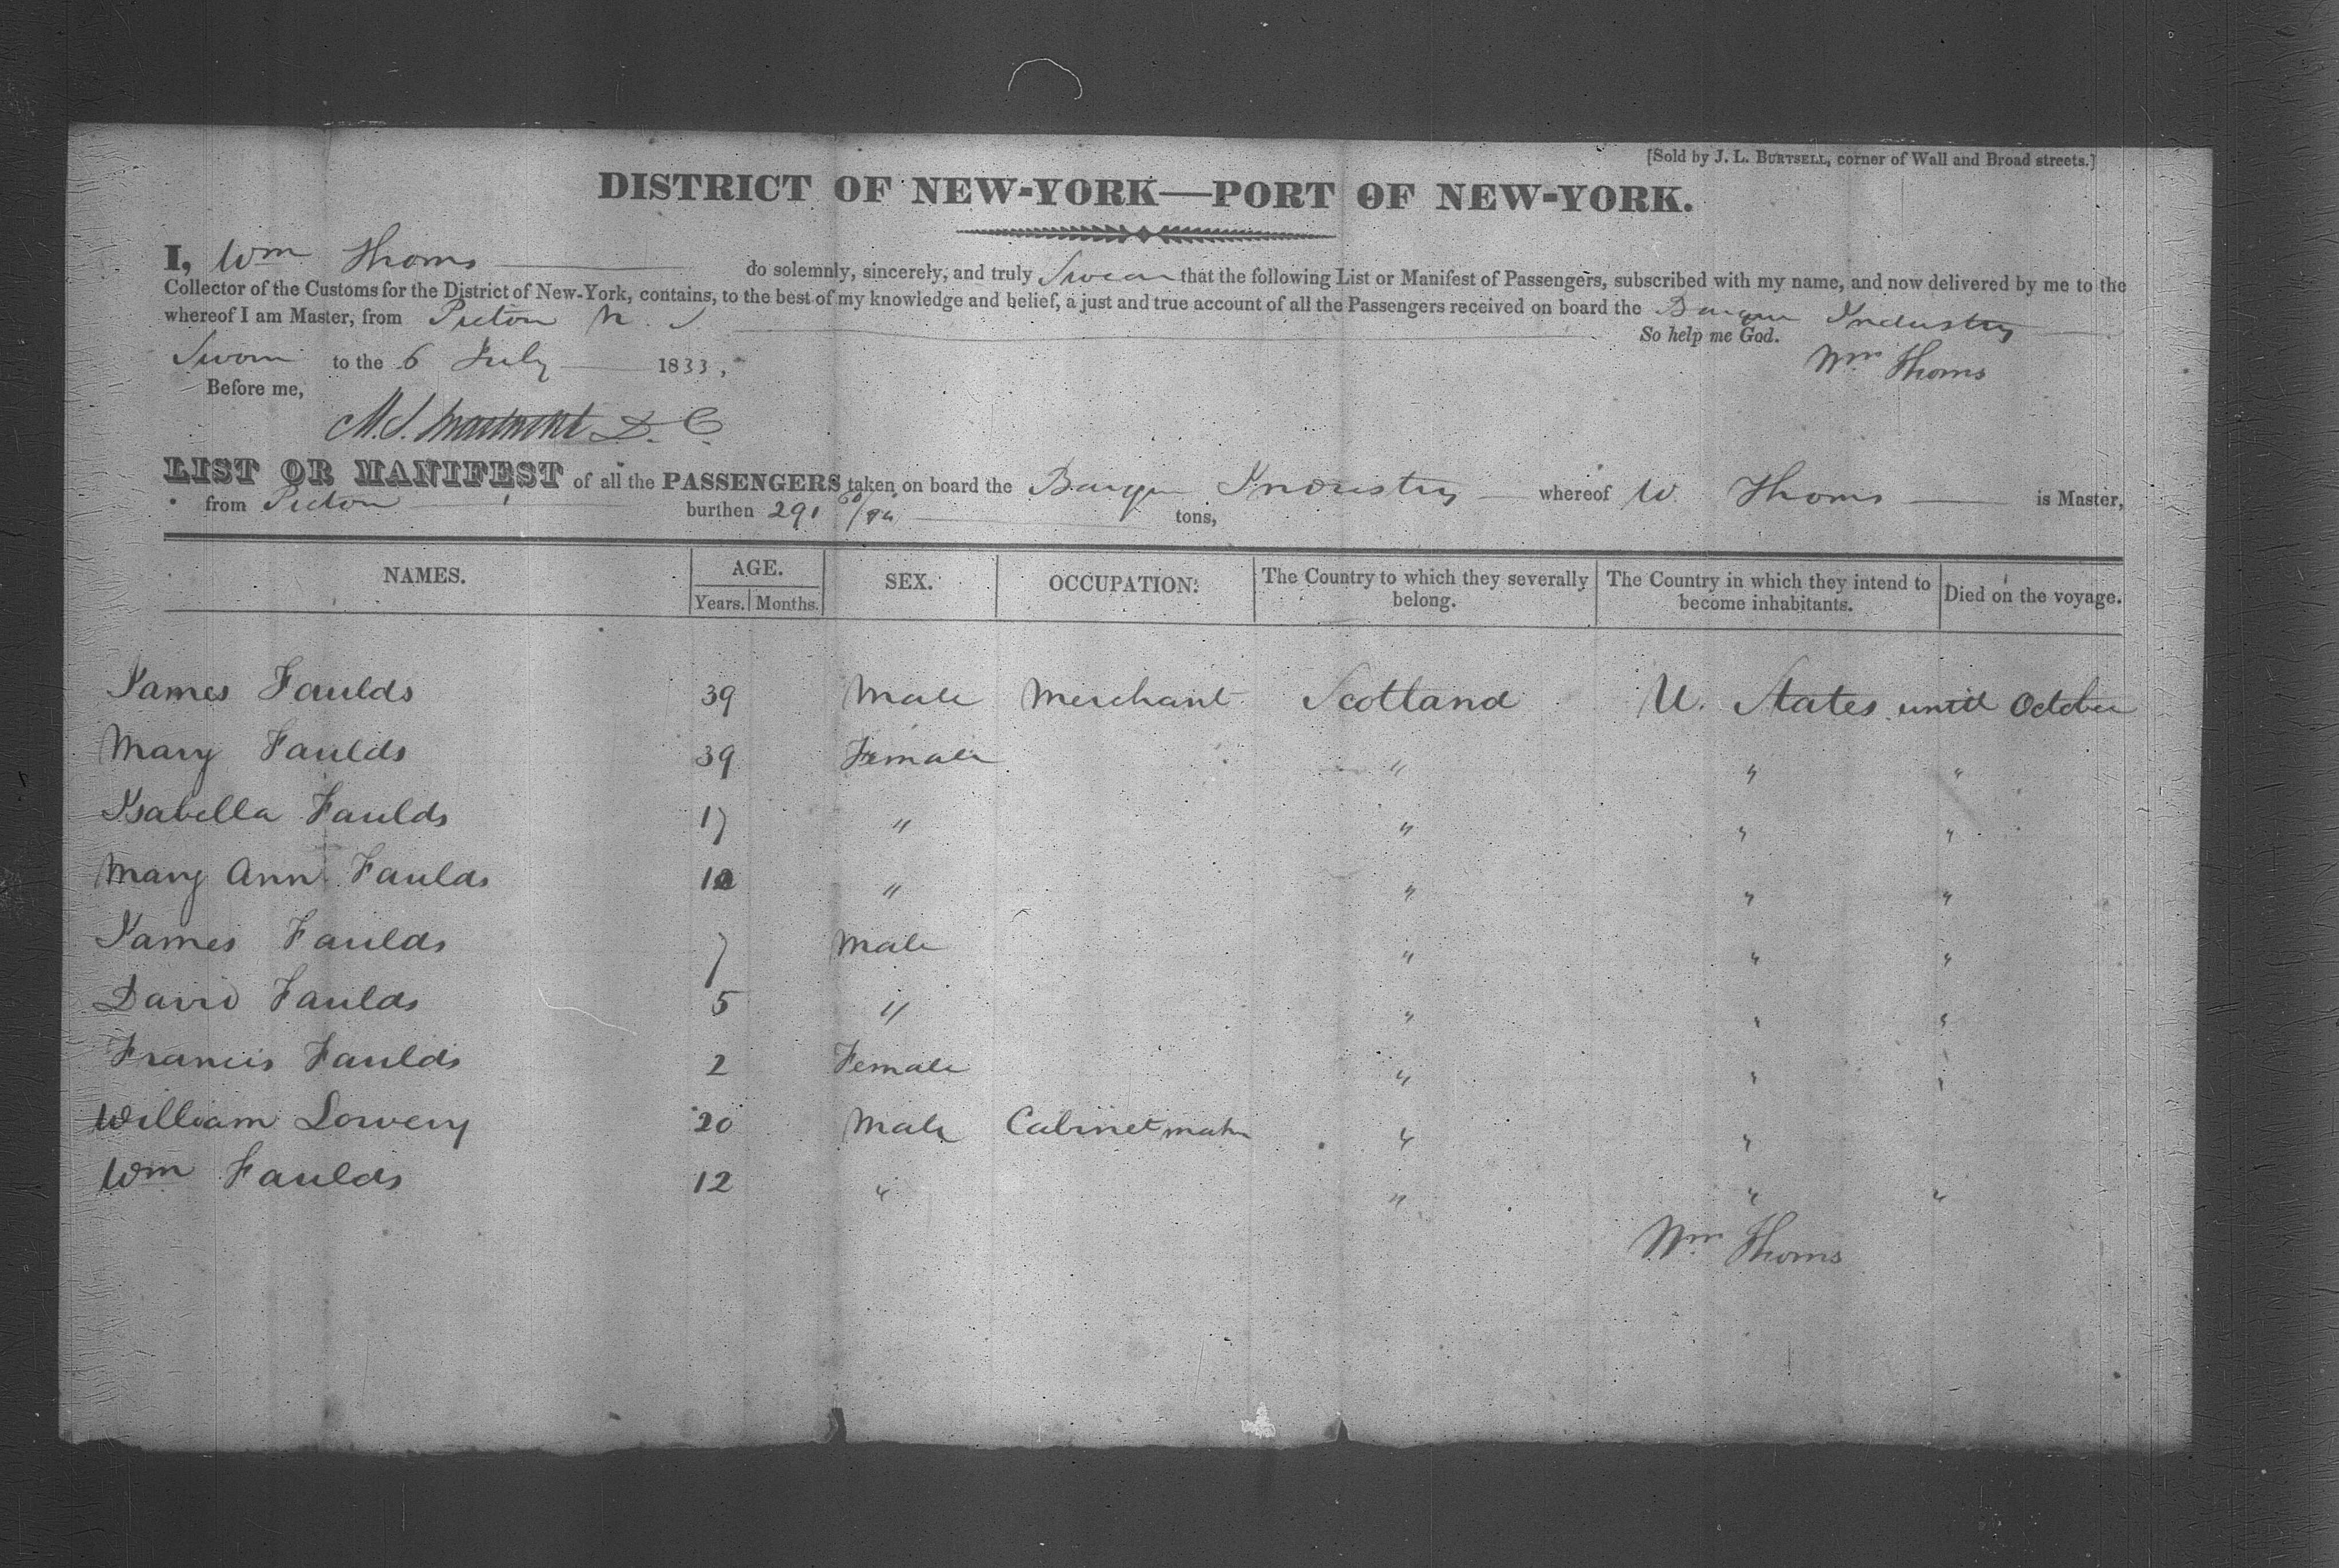 [Sold by J. L. BURTSELL, corner of Wall and Broad streets.]
DISTRICT OF NEW-YORK—PORT OF NEW-YORK.
I, Wm Thoms do solemnly, sincerely, and truly Swear that the following List or Manifest of Passengers, subscribed with my name, and now delivered by me to the
Collector of the Customs for the District of New-York, contains, to the best of my knowledge and belief, a just and true account of all the Passengers received on board the Barque Industry
whereof I am Master, from Picton N. S.
So help me God.
Sworn to the 6 July 1833,
Wm Thoms
Before me,
M. S. D. C.
LIST OR MANIFEST of all the PASSENGERS taken on board the Barque Industry whereof W. Thoms is Master,
from Picton burthen 291 tons,
NAMES. AGE. SEX. OCCUPATION. The Country to which they severally belong. The Country in which they intend to become inhabitants. Died on the voyage.
Years. Months.
James Faulds 39 Male Merchant Scotland U. States until October
Mary Faulds 39 Female " " "
Isabella Faulds 17 " " " "
Mary Ann Faulds " " " "
James Faulds 7 Male " " "
David Faulds 5 " " " "
Francis Faulds 2 Female " " "
William Lowery 20 Male Cabinet maker " "
Wm Faulds 12 " " " "
Wm Thoms